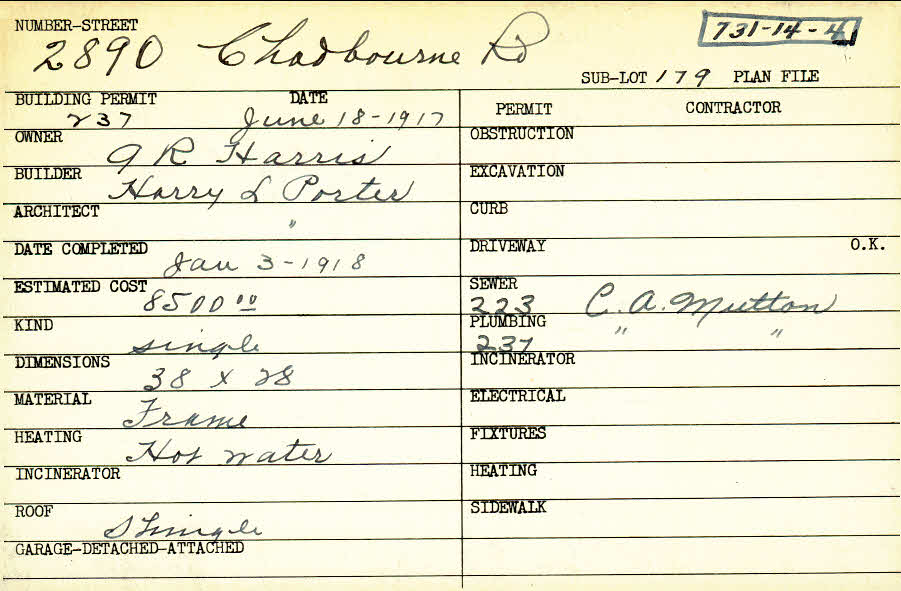 NUMBER-STREET
731-14-4
2890 Chadbourne Rd
SUB-LOT 179 PLAN FILE
BUILDING PERMIT DATE
237 June 18-1917
OWNER
A R Harris
BUILDER
Harry L Porter
ARCHITECT
"
DATE COMPLETED
Jan 3-1918
ESTIMATED COST
8500 00
KIND
single
DIMENSIONS
38 x 28
MATERIAL
Frame
HEATING
Hot water
INCINERATOR
ROOF
Shingle
GARAGE-DETACHED-ATTACHED
PERMIT CONTRACTOR
OBSTRUCTION
EXCAVATION
CURB
DRIVEWAY O.K.
SEWER
223 C. A. Mutton
PLUMBING
237 " "
INCINERATOR
ELECTRICAL
FIXTURES
HEATING
SIDEWALK